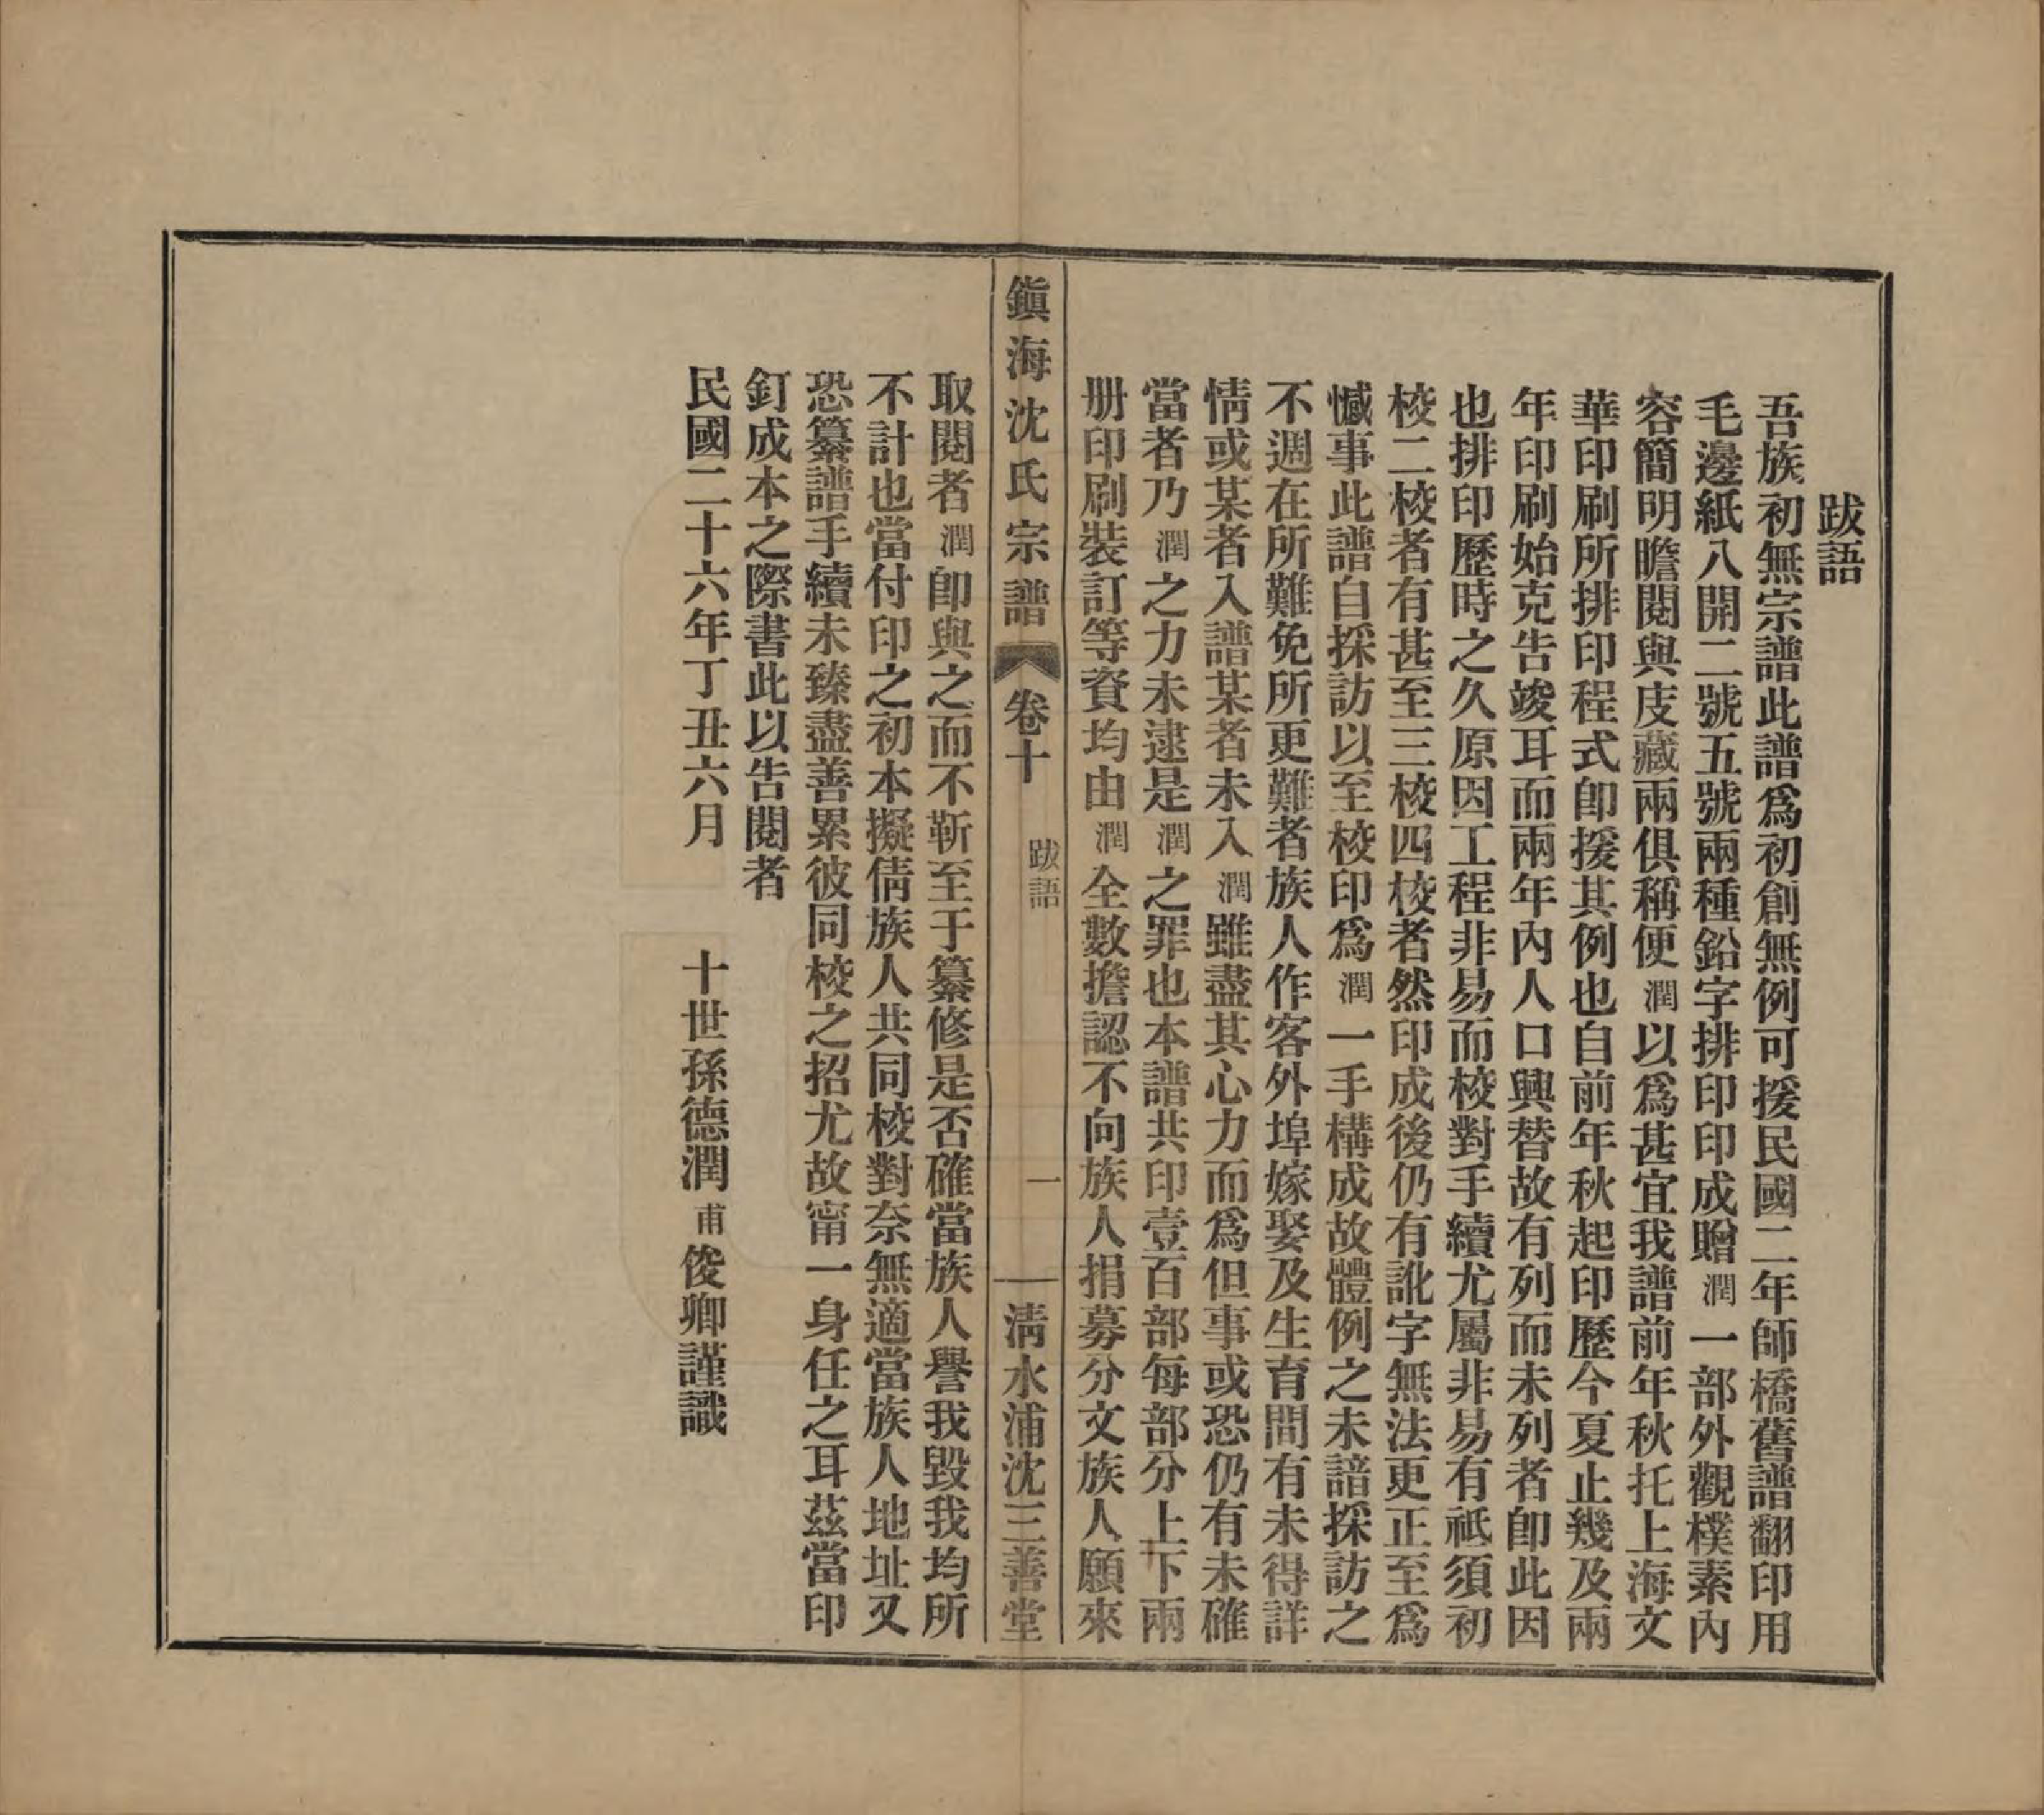 跋語
吾族初無宗譜此譜爲初創無例可援民國二年師橋舊譜翻印用
毛邊紙八開二號五號兩種鉛字排印印成贈潤一部外觀樸素內
容簡明瞻閱與庋藏兩俱稱便潤以爲甚宜我譜前年秋托上海文
華印刷所排印程式卽援其例也自前年秋起印歷今夏止幾及兩
年印刷始克告竣耳而兩年內人口興替故有列而未列者卽此因
也排印歷時之久原因工程非易而校對手續尤屬非易有祗須初
校二校者有甚至三校四校者然印成後仍有訛字無法更正至爲
憾事此譜自採訪以至校印爲潤一手構成故體例之未諳採訪之
不週在所難免所更難者族人作客外埠嫁娶及生育間有未得詳
情或某者入譜某者未入潤雖盡其心力而爲但事或恐仍有未確
當者乃潤之力未逮是潤之罪也本譜共印壹百部每部分上下兩
册印刷裝訂等資均由潤全數擔認不向族人捐募分文族人願來
鎭海沈氏宗譜 卷十 跋語 一 淸水浦沈三善堂
取閱者潤卽與之而不靳至于纂修是否確當族人譽我毀我均所
不計也當付印之初本擬倩族人共同校對奈無適當族人地址又
恐纂譜手續未臻盡善累彼同校之招尤故甯一身任之耳茲當印
釘成本之際書此以告閱者
民國二十六年丁丑六月 十世孫德潤甫俊卿謹識